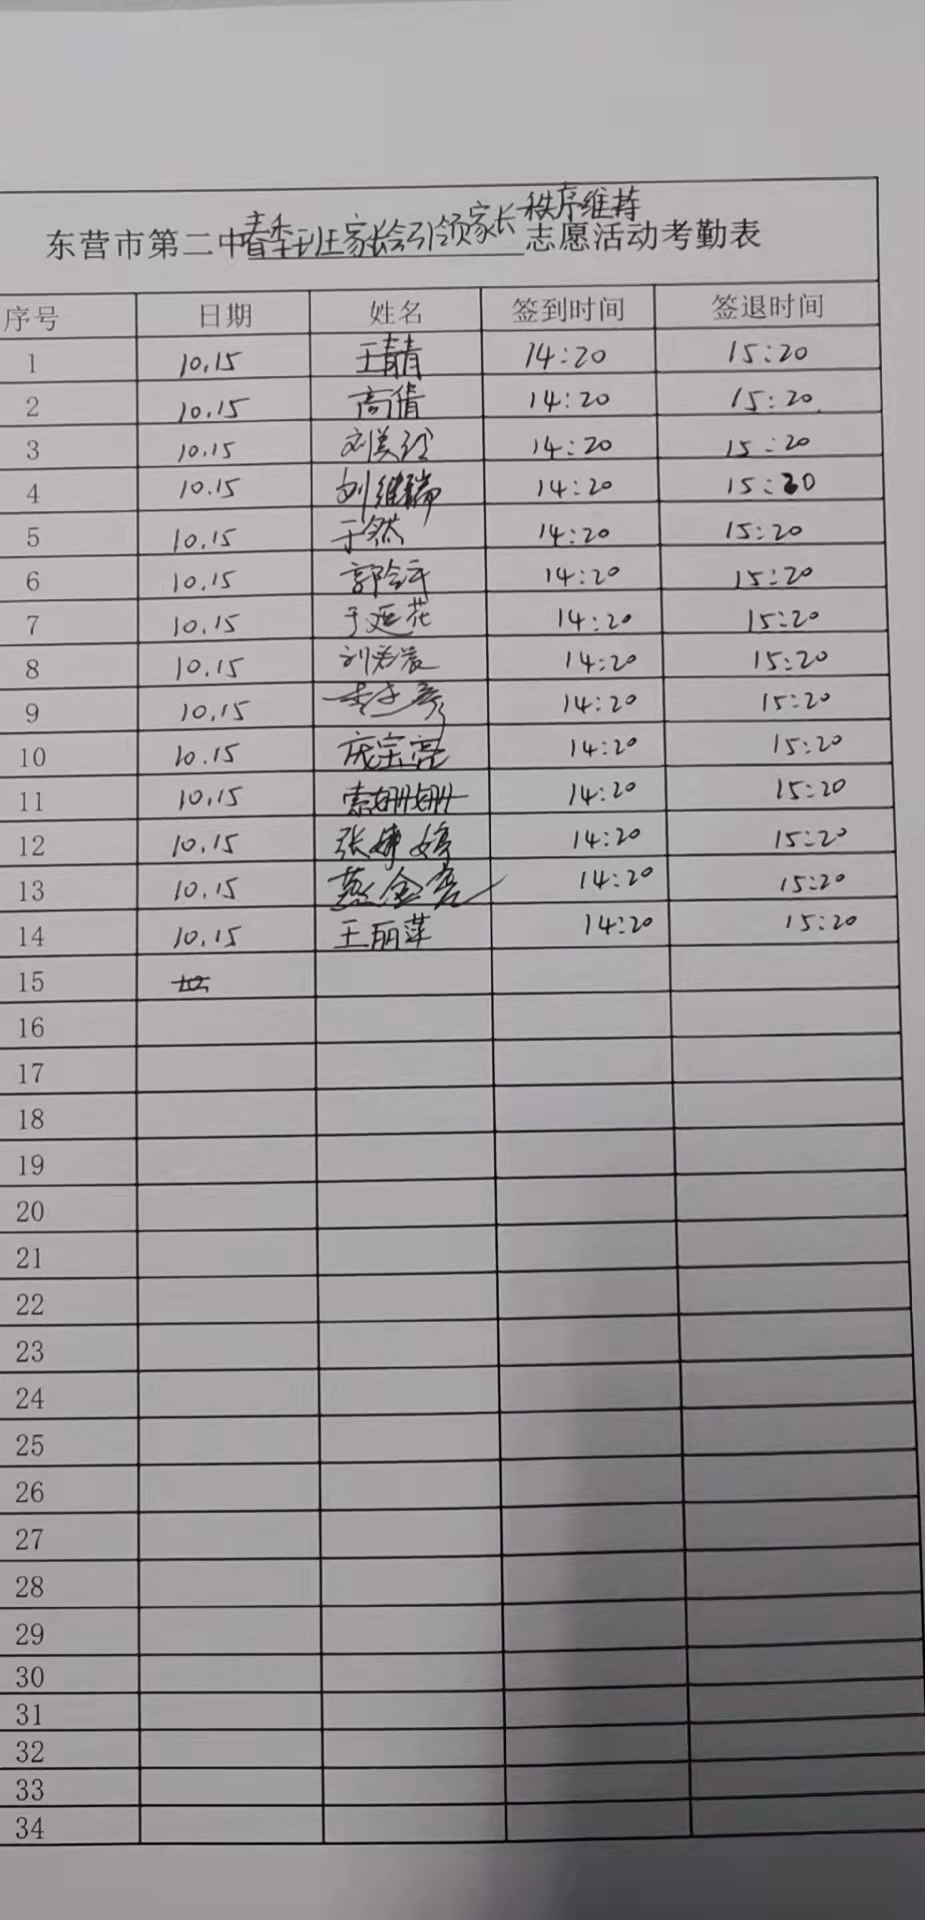 秩序维持
东营市第二中春季班家长会引领家长志愿活动考勤表
序号 日期 姓名 签到时间 签退时间
1 10.15 王青青 14:20 15:20
2 10.15 高倩 14:20 15:20
3 10.15 刘美玲 14:20 15:20
4 10.15 刘维瑞 14:20 15:20
5 10.15 于然 14:20 15:20
6 10.15 郭 14:20 15:20
7 10.15 于延花 14:20 15:20
8 10.15 刘 14:20 15:20
9 10.15 李 14:20 15:20
10 10.15 庞宗亮 14:20 15:20
11 10.15 索姗姗 14:20 15:20
12 10.15 张婷婷 14:20 15:20
13 10.15 燕金亮 14:20 15:20
14 10.15 王丽萍 14:20 15:20
15
16
17
18
19
20
21
22
23
24
25
26
27
28
29
30
31
32
33
34